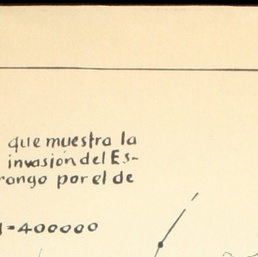 que muestra la
invasion del Es-
rango por el de
1=400000